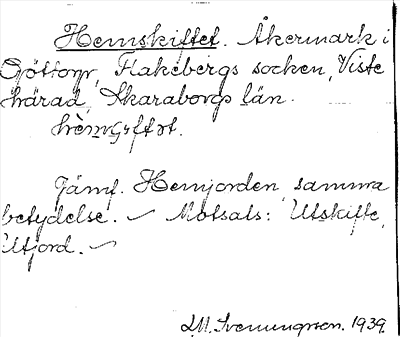 Hemskiftet. Åkermark i
Göttorp, Flakebergs socken, Viste
härad, Skaraborgs län.

Jämf. Hemjorden, samma
betydelse. – Motsats: Utskifte,
Utjord. –
1939.